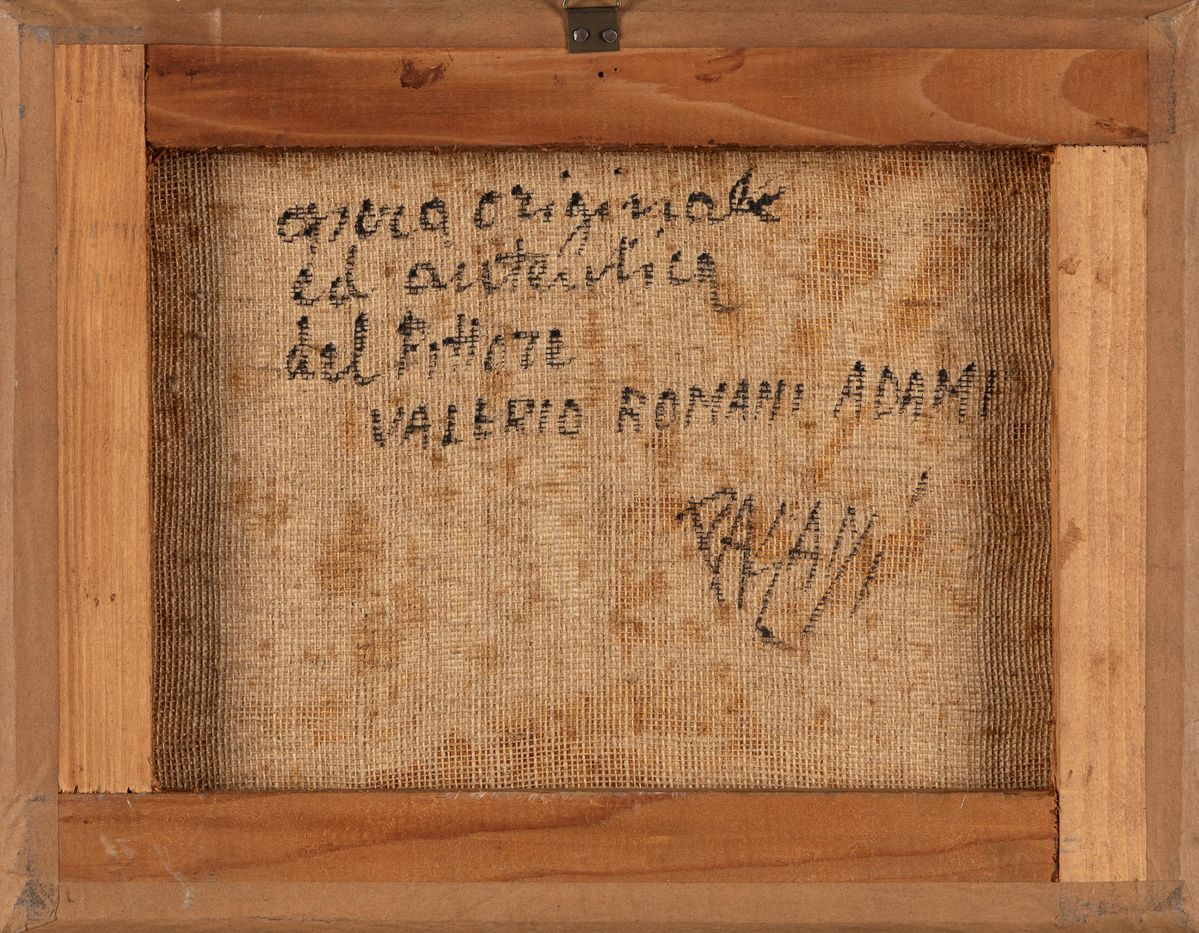 opera originale
ed autentica
del PittORE
VALERIO ROMANI ADAMI